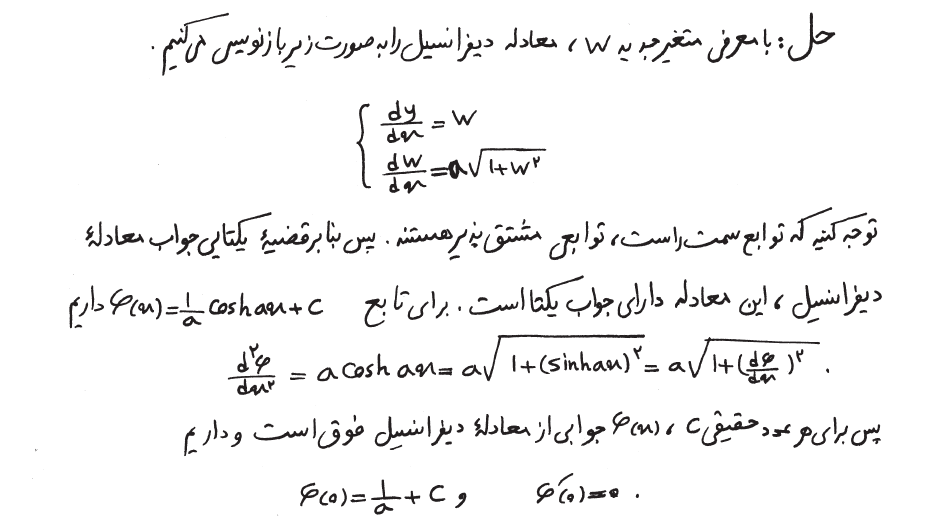 حل : با معرفی متغیر جدید W ، معادله دیفرانسیل را به صورت زیر بازنویسی می‌کنیم .
{ dy/dx = W
dW/dx = a√(1+W²)
توجه کنید که توابع سمت راست ، توابعی مشتق پذیر هستند . پس بنا بر قضیهٔ یکتایی جواب معادلهٔ
دیفرانسیل ، این معادله دارای جواب یکتا است . برای تابع φ(x) = 1/a cosh ax + C داریم
d²φ/dx² = a cosh ax = a√(1+(sinh ax)²) = a√(1+(dφ/dx)²) .
پس برای هر عدد حقیقی C ، φ(x) جوابی از معادلهٔ دیفرانسیل فوق است و داریم
φ(0) = 1/a + C و φ′(0) = 0 .